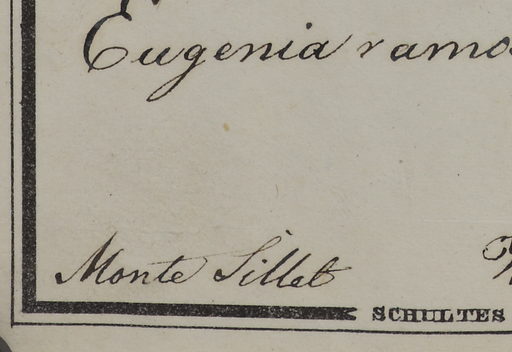 Eugenia ramos
Monte Sillet
SCHULTES